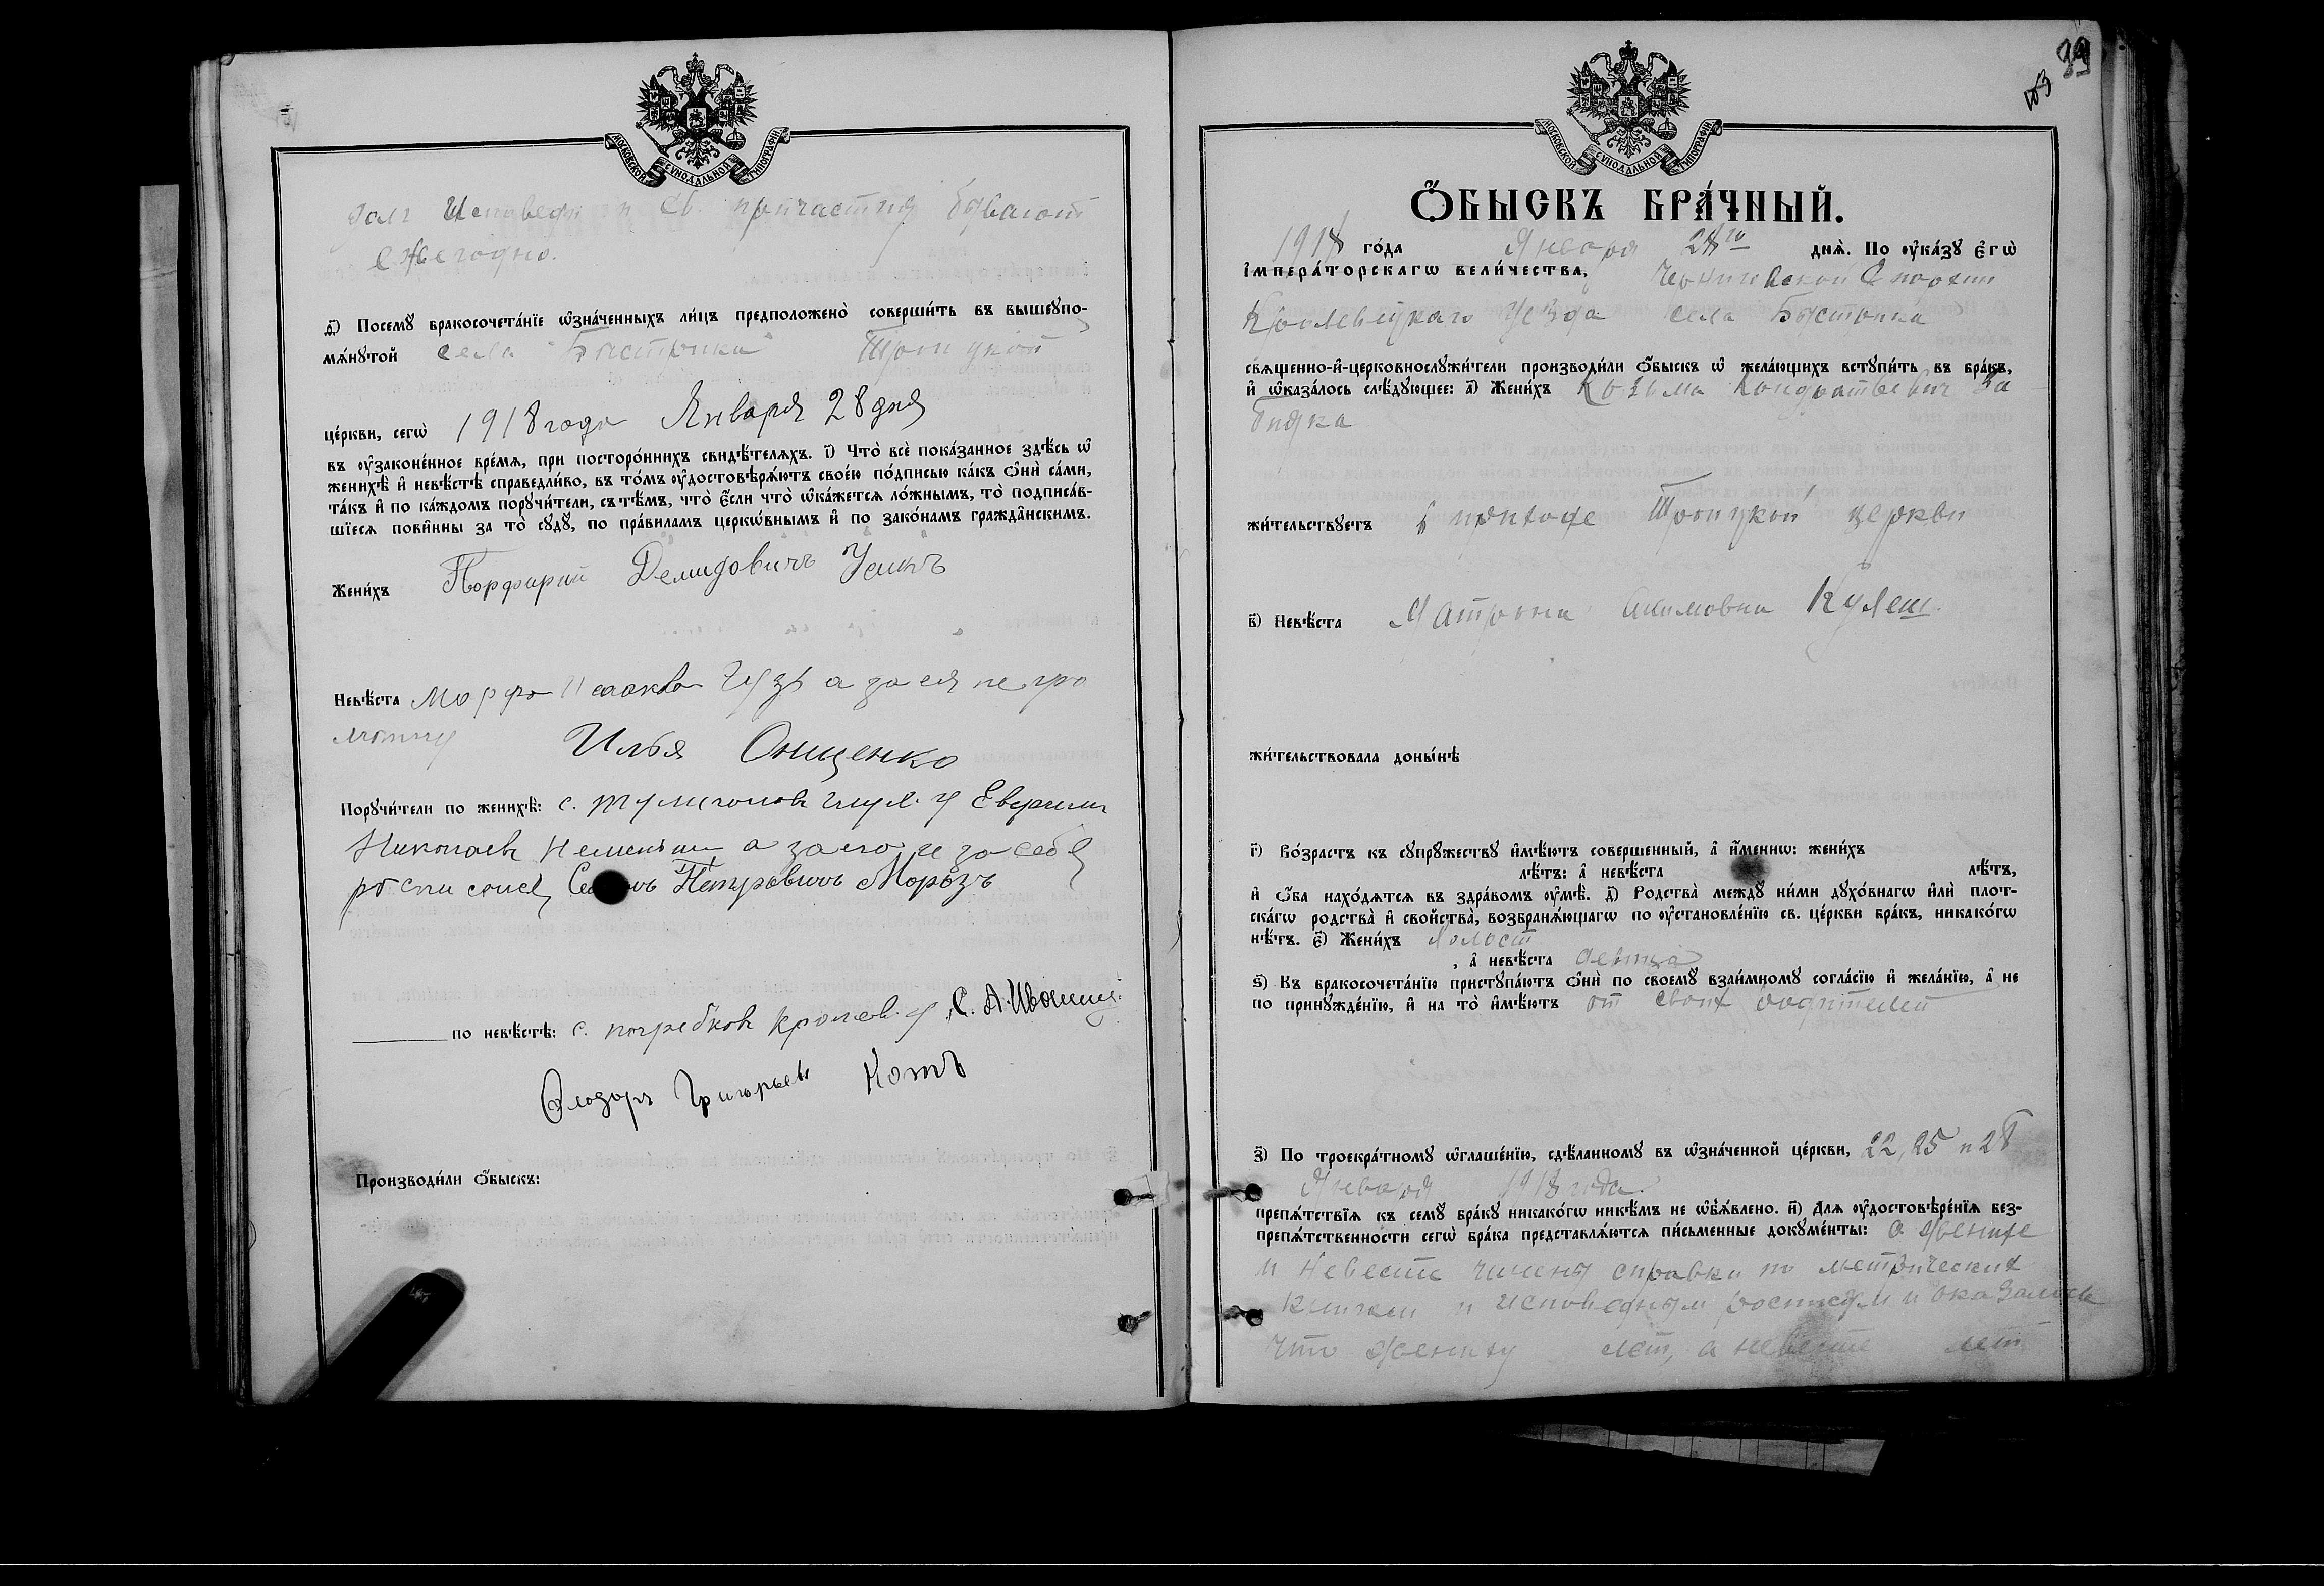 МОСКОВСКОЙ СѴНОДАЛЬНОЙ ТИПОГРАФІИ
долг Исповеди и Св. причастия бувают
ежегодно.
д҃і) Посемꙋ̀ бракосочета́нїе ѡ҆зна́ченныхъ ли́цъ предположено̀ соверши́ть въ вышеꙋпо-
мѧ́нꙋтой села Быстрика Троицкой
це́ркви, сегѡ̀ 1918 года Января 28 дня
въ ᲂу҆законе́нное вре́мѧ, при посторо́ннихъ свидѣ́телѧхъ. і҃) Что̀ всѐ пока́занное здѣ́сь ѡ҆
женихѣ̀ и҆ невѣ́стѣ справедли́во, въ то́мъ ᲂу҆достовѣрѧ́ютъ свое́ю по́дписью ка́къ ѻ҆нѝ са́ми,
та́къ и҆ по ка́ждомъ порꙋчи́тели, съ тѣ́мъ, что̀ є҆́сли что̀ ѡ҆ка́жетсѧ ло́жнымъ, то̀ подписа́в-
шїесѧ пови́нны за то̀ сꙋдꙋ̀, по пра́виламъ церкѡ́внымъ и҆ по зако́намъ гражда́нскимъ.
Жени́хъ Порфирій Демидовичъ Усикъ
Невѣ́ста Марфа Исаакова Гузь а за ея негра
мотну Илья Онищенко
Порꙋчи́тели по женихѣ̀: с. Тулиголов Глух. у Евфимий
Николаев а за его и за себя
росписался Петровичъ Морозъ
по невѣ́стѣ: с. погребков кролев. у С. А. Иванищ.
Ѳеодоръ Григорьев Котъ
Производи́ли ѻ҆́быскъ:
39
103
МОСКОВСКОЙ СѴНОДАЛЬНОЙ ТИПОГРАФІИ
Ѻ҆́БЫСКЪ БРА́ЧНЫЙ.
1918 го́да Января 28го днѧ̀. По ᲂу҆ка́зꙋ є҆гѡ̀
і҆мпера́торскагѡ вели́чества, Черниговской Епархии
Кролевецкаго Уезда села Быстрика
свѧще́нно-и҆-церковнослꙋжи́тели производи́ли ѻ҆́быскъ ѡ҆ жела́ющихъ встꙋпи́ть въ бра́къ,
и҆ ѡ҆каза́лось слѣ́дꙋющее: а҃) Жени́хъ Козьма Кондратьевич За
бияка
жи́тельствꙋетъ в приходе Троицкой церкви
в҃) Невѣ́ста Матрона Акимовна Кулеш.
жи́тельствовала доны́нѣ
г҃) Во́зрастъ къ сꙋпрꙋ́жествꙋ и҆мѣ́ютъ соверше́нный, а҆ и҆́меннѡ: жени́хъ
лѣ́тъ: а҆ невѣ́ста лѣ́тъ,
и҆ ѻ҆́ба нахо́дѧтсѧ въ здра́вомъ ᲂу҆мѣ̀. д҃) Родства̀ междꙋ̀ ни́ми дꙋхо́внагѡ и҆лѝ пло́т-
скагѡ родства̀ и҆ сво́йства, возбранѧ́ющагѡ по ᲂу҆становле́нїю св. це́ркви бра́къ, никако́гѡ
нѣ́тъ. є҃) Жени́хъ холост
, а҆ невѣ́ста девица
ѕ҃) Къ бракосочета́нїю пристꙋпа́ютъ ѻ҆нѝ по своемꙋ̀ взаи́мномꙋ согла́сїю и҆ жела́нїю, а҆ не
по принꙋжде́нїю, и҆ на то̀ и҆мѣ́ютъ от своих родителей
з҃) По троекра́тномꙋ ѡ҆глаше́нїю, сдѣ́ланномꙋ въ ѡ҆зна́ченной це́ркви, 22, 25 и 28
Января 1918 года.
препѧ́тствїѧ къ семꙋ̀ бра́кꙋ никако́гѡ никѣ́мъ не ѡ҆б̾ѧ́влено. и҃) Длѧ ᲂу҆достовѣре́нїѧ без-
препѧ́тственности сегѡ̀ бра́ка представлѧ́ютсѧ пи́сьменные докꙋме́нты: о женихе
и Невесте чинены справки по метрических
книгам и исповедным росписям и оказалось
что жениху лет, а невесте лет